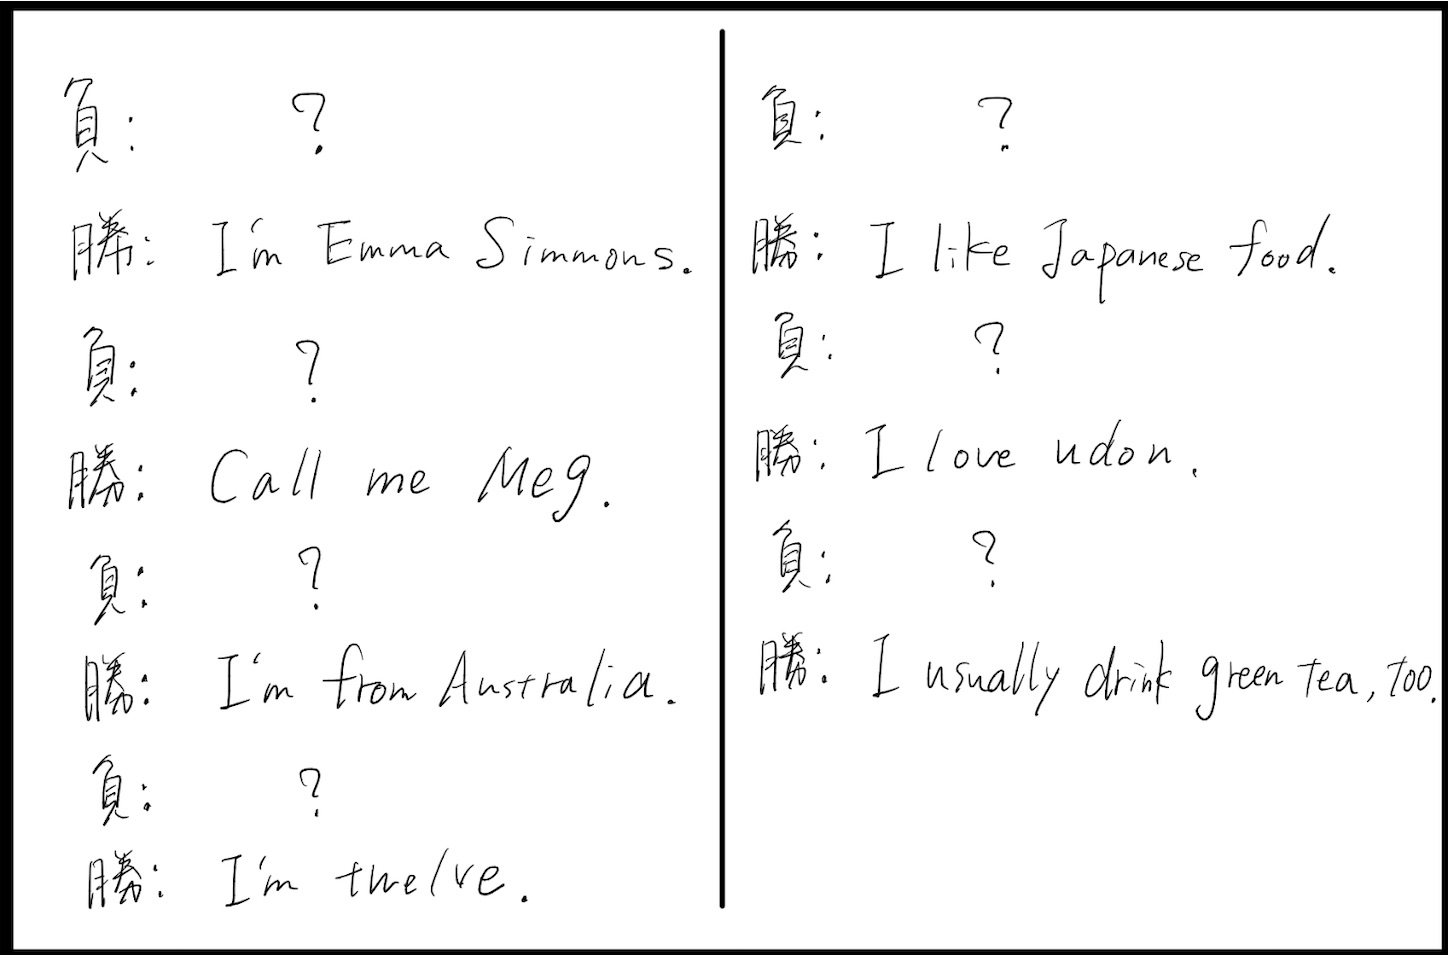 負: ?
勝: I'm Emma Simmons.
負: ?
勝: Call me Meg.
負: ?
勝: I'm from Australia.
負: ?
勝: I'm twelve.
負: ?
勝: I like Japanese food.
負: ?
勝: I love udon.
負: ?
勝: I usually drink green tea, too.